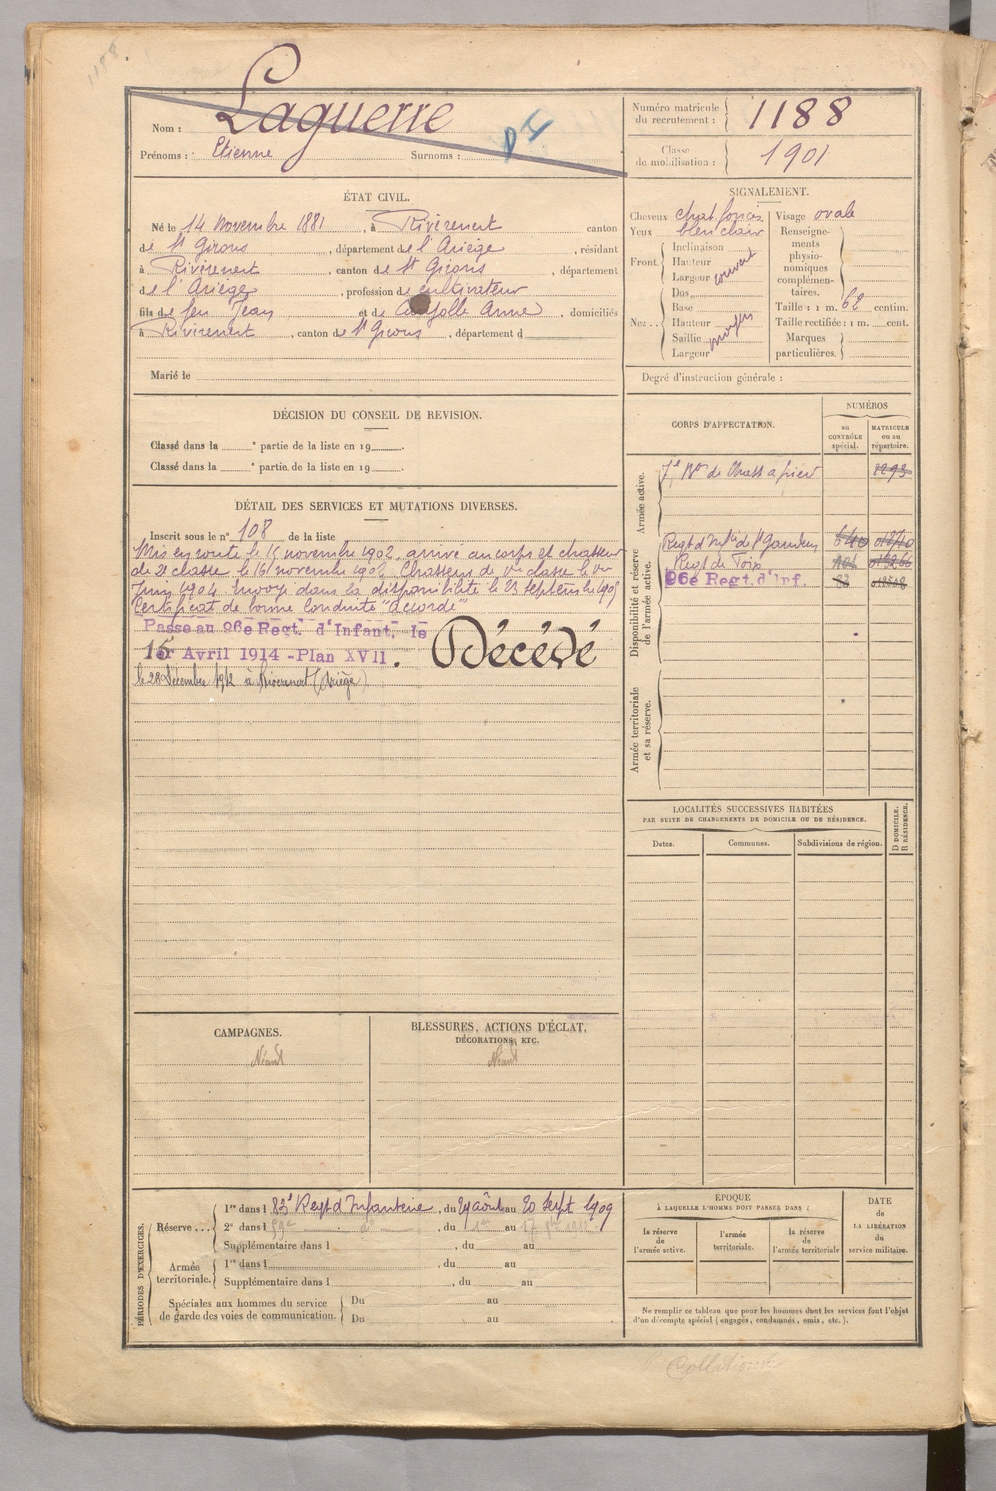 1188.
Nom : Laguerre
Prénoms : Etienne Surnoms :
Numéro matricule du recrutement : 1188
Classe de mobilisation : 1901
ÉTAT CIVIL.
Né le 14 novembre 1881, à Rivèrenert canton
de St Girons, département de l'Ariège, résidant
à Rivèrenert, canton de St Girons, département
de l'Ariège, profession de cultivateur
fils de feu Jean et de Anne, domiciliés
à Rivèrenert, canton de St Girons, département d
Marié le
SIGNALEMENT.
Cheveux chat. foncés Visage ovale
Yeux bleu clair
Front. Inclinaison Hauteur Largeur couvert
Nez .. Dos Base Hauteur Saillie Largeur moyen
Renseignements physionomiques complémentaires.
Taille : 1 m. 62 centim.
Taille rectifiée : 1 m. cent.
Marques particulières.
Degré d'instruction générale :
DÉCISION DU CONSEIL DE REVISION.
Classé dans la e partie de la liste en 19 .
Classé dans la e partie de la liste en 19 .
CORPS D'AFFECTATION.
NUMÉROS
au CONTRÔLE spécial.
MATRICULE ou au répertoire.
Armée active.
7e Bon de Chass à pied
Disponibilité et réserve de l'armée active.
Regt d'Infie de St Gaudens 640
Regt de Foix
96e Regt. d'Inf. 83
Armée territoriale et sa réserve.
DÉTAIL DES SERVICES ET MUTATIONS DIVERSES.
Inscrit sous le n° 108 de la liste
Mis en route le 15 novembre 1902, arrivé au corps et chasseur
de 2e classe le 16 novembre 1902. Chasseur de 1re classe le 1er
Juin 1904. Envoyé dans la disponibilité le 23 septembre 1905
Certificat de bonne conduite "Accordé"
Passé au 96e Regt. d'Infant. le
1er Avril 1914 - Plan XVII. Décédé
le 28 Décembre 1912 à Rivèrenert (Ariège)
LOCALITÉS SUCCESSIVES HABITÉES
PAR SUITE DE CHANGEMENTS DE DOMICILE OU DE RÉSIDENCE.
Dates. Communes. Subdivisions de région.
D DOMICILE. R RÉSIDENCE.
CAMPAGNES.
Néant
BLESSURES, ACTIONS D'ÉCLAT, DÉCORATIONS, ETC.
Néant
PÉRIODES D'EXERCICES.
Réserve ... 1re dans l 83e Regt d'Infanterie, du 29 août au 20 Sept 1909
2e dans l 59e , du 1er au 17
Supplémentaire dans l , du au
Armée territoriale. 1re dans l , du au
Supplémentaire dans l , du au
Spéciales aux hommes du service de garde des voies de communication. Du au
Du au
ÉPOQUE
À LAQUELLE L'HOMME DOIT PASSER DANS :
la réserve de l'armée active.
l'armée territoriale.
la réserve de l'armée territoriale
DATE de LA LIBÉRATION du service militaire.
Ne remplir ce tableau que pour les hommes dont les services font l'objet
d'un décompte spécial (engagés, condamnés, omis, etc.).
Collationné